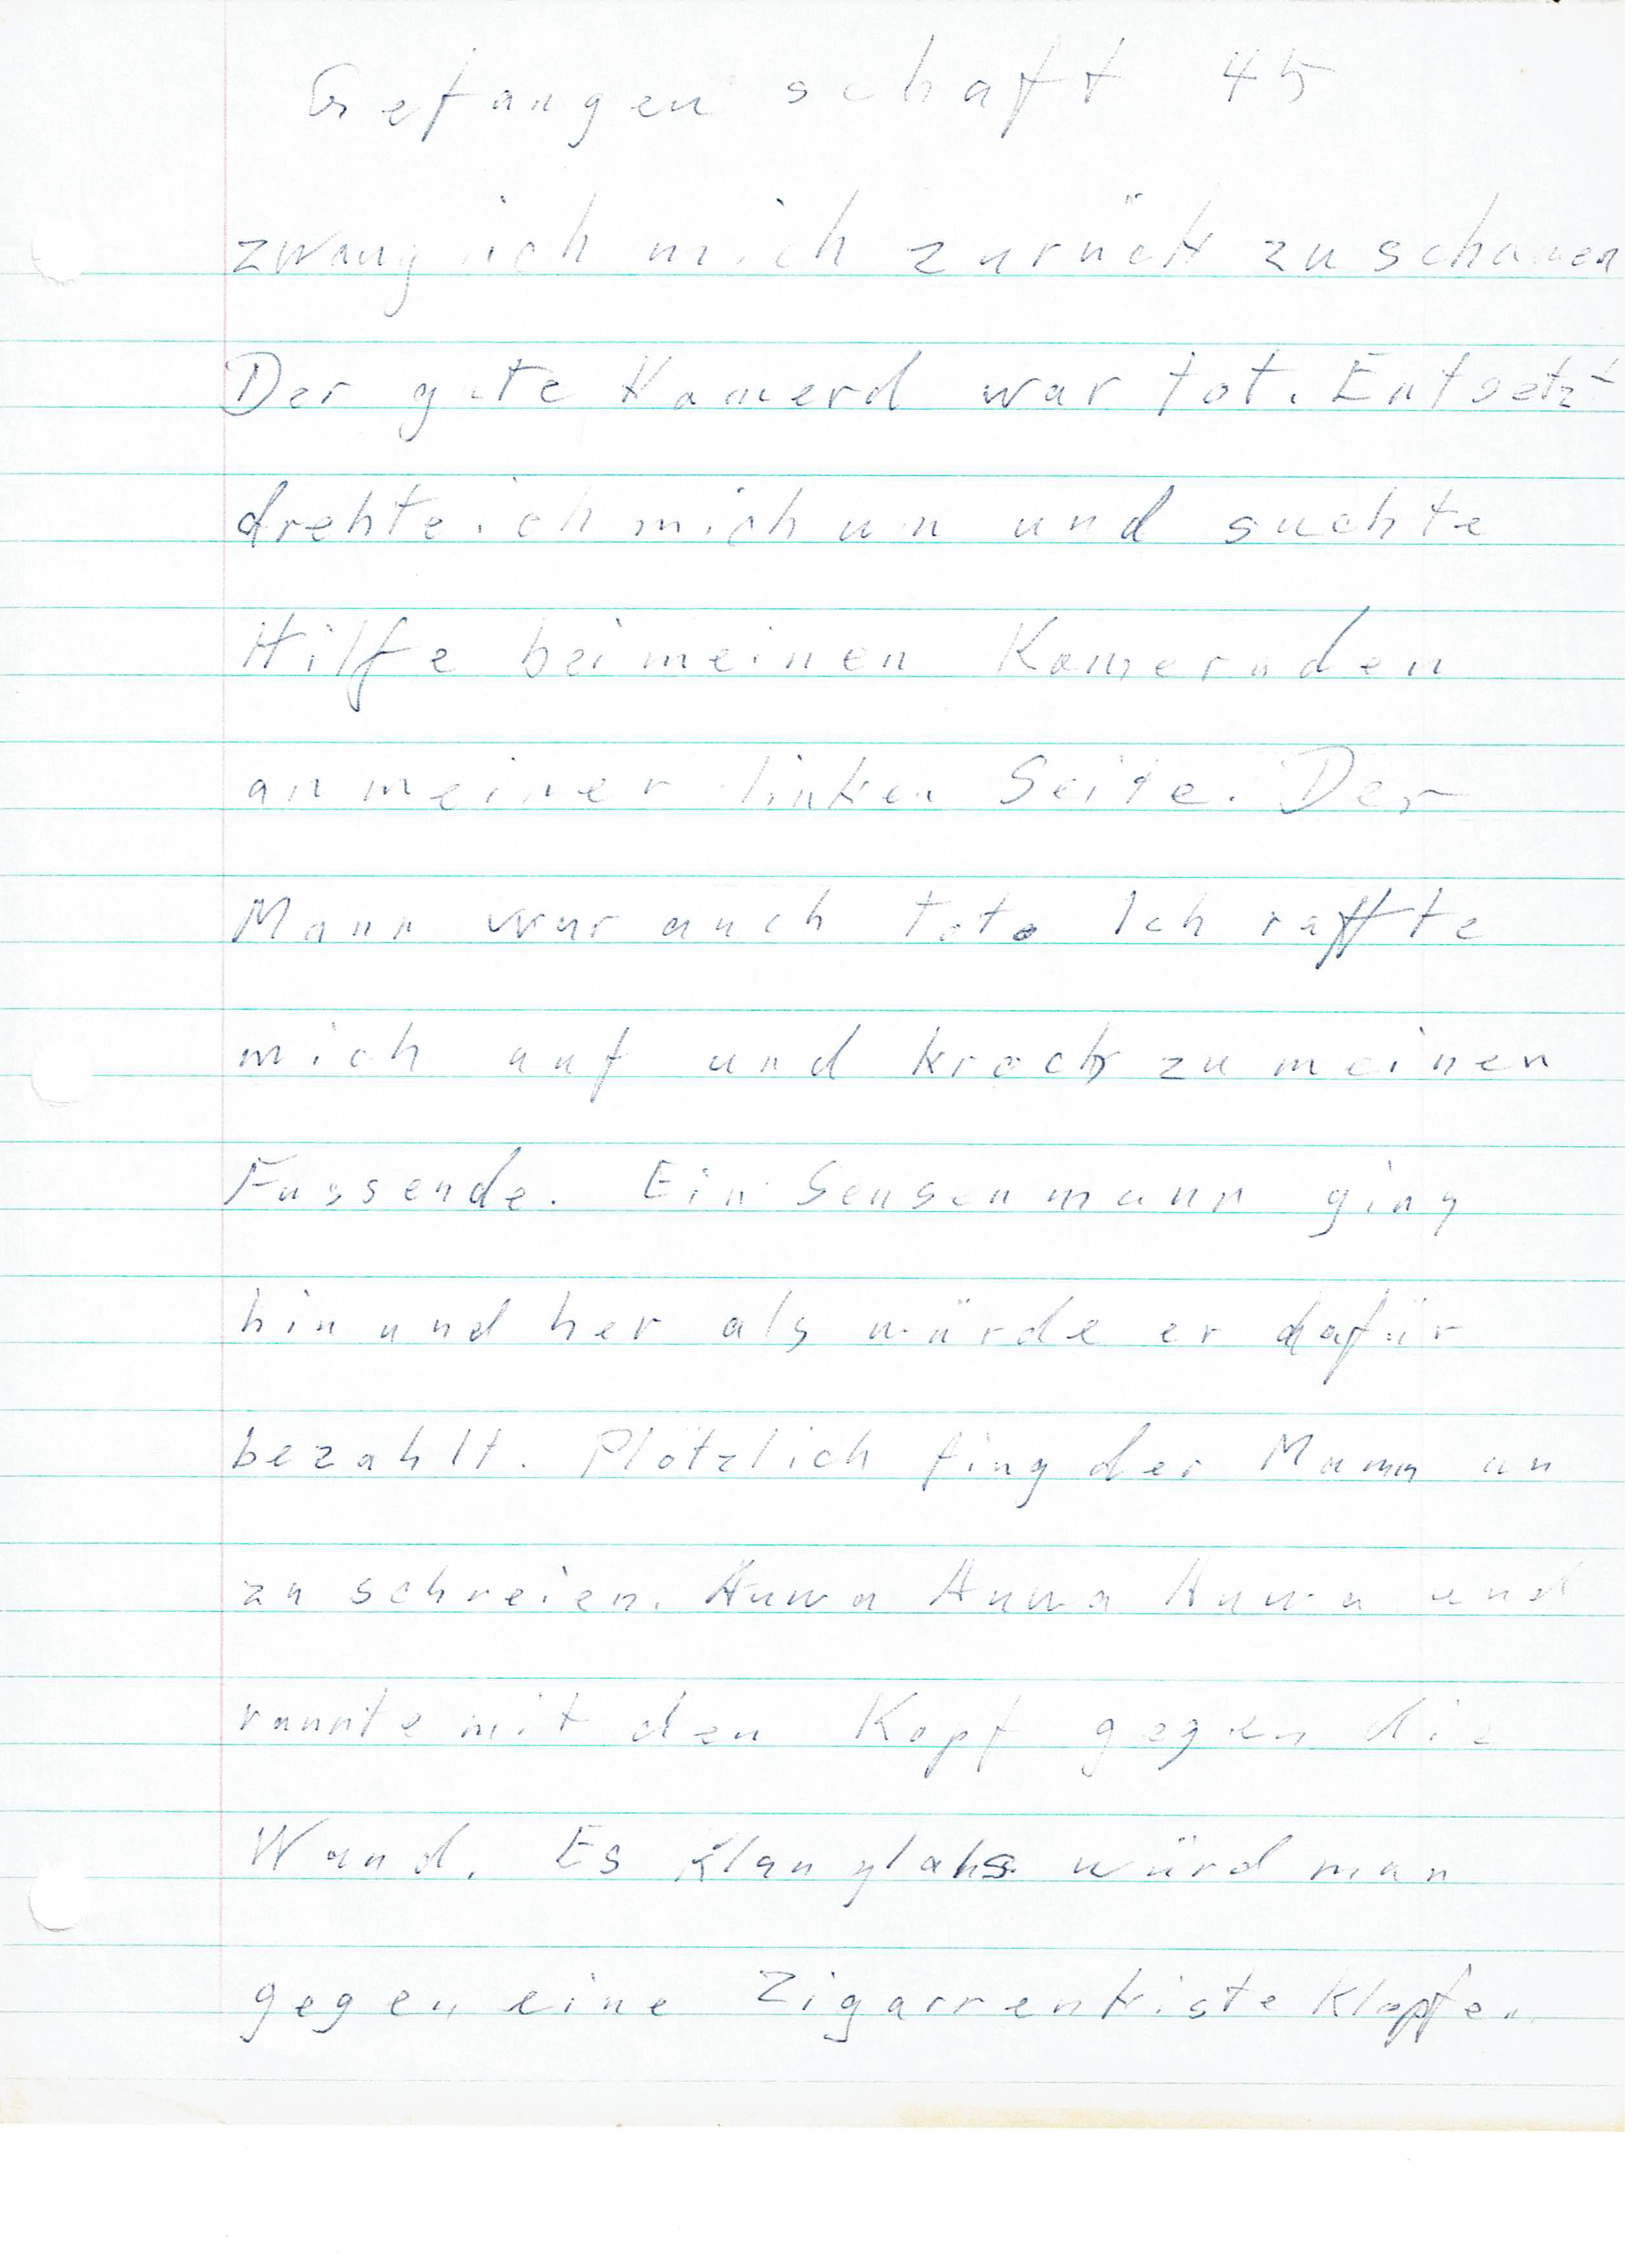 Gefangenschaft 45
zwang ich mich zurück zu schauen
Der gute Kamerd war tot. Entsetzt
drehte ich mich un und suchte
Hilfe bei meinen Kameraden
an meiner linken Seite. Der
Mann war auch tot. Ich raffte
mich auf und kroch zu meinen
Fussende. Ein Sensenmann ging
hin und her als würde er dafür
bezahlt. Plötzlich fing der Mamm an
zu schreien. Huwa Huwa Huwa und
rannte mit den Kopf gegen die
Wand. Es klang lahs würd man
gegen eine Zigarrenkiste klopfen